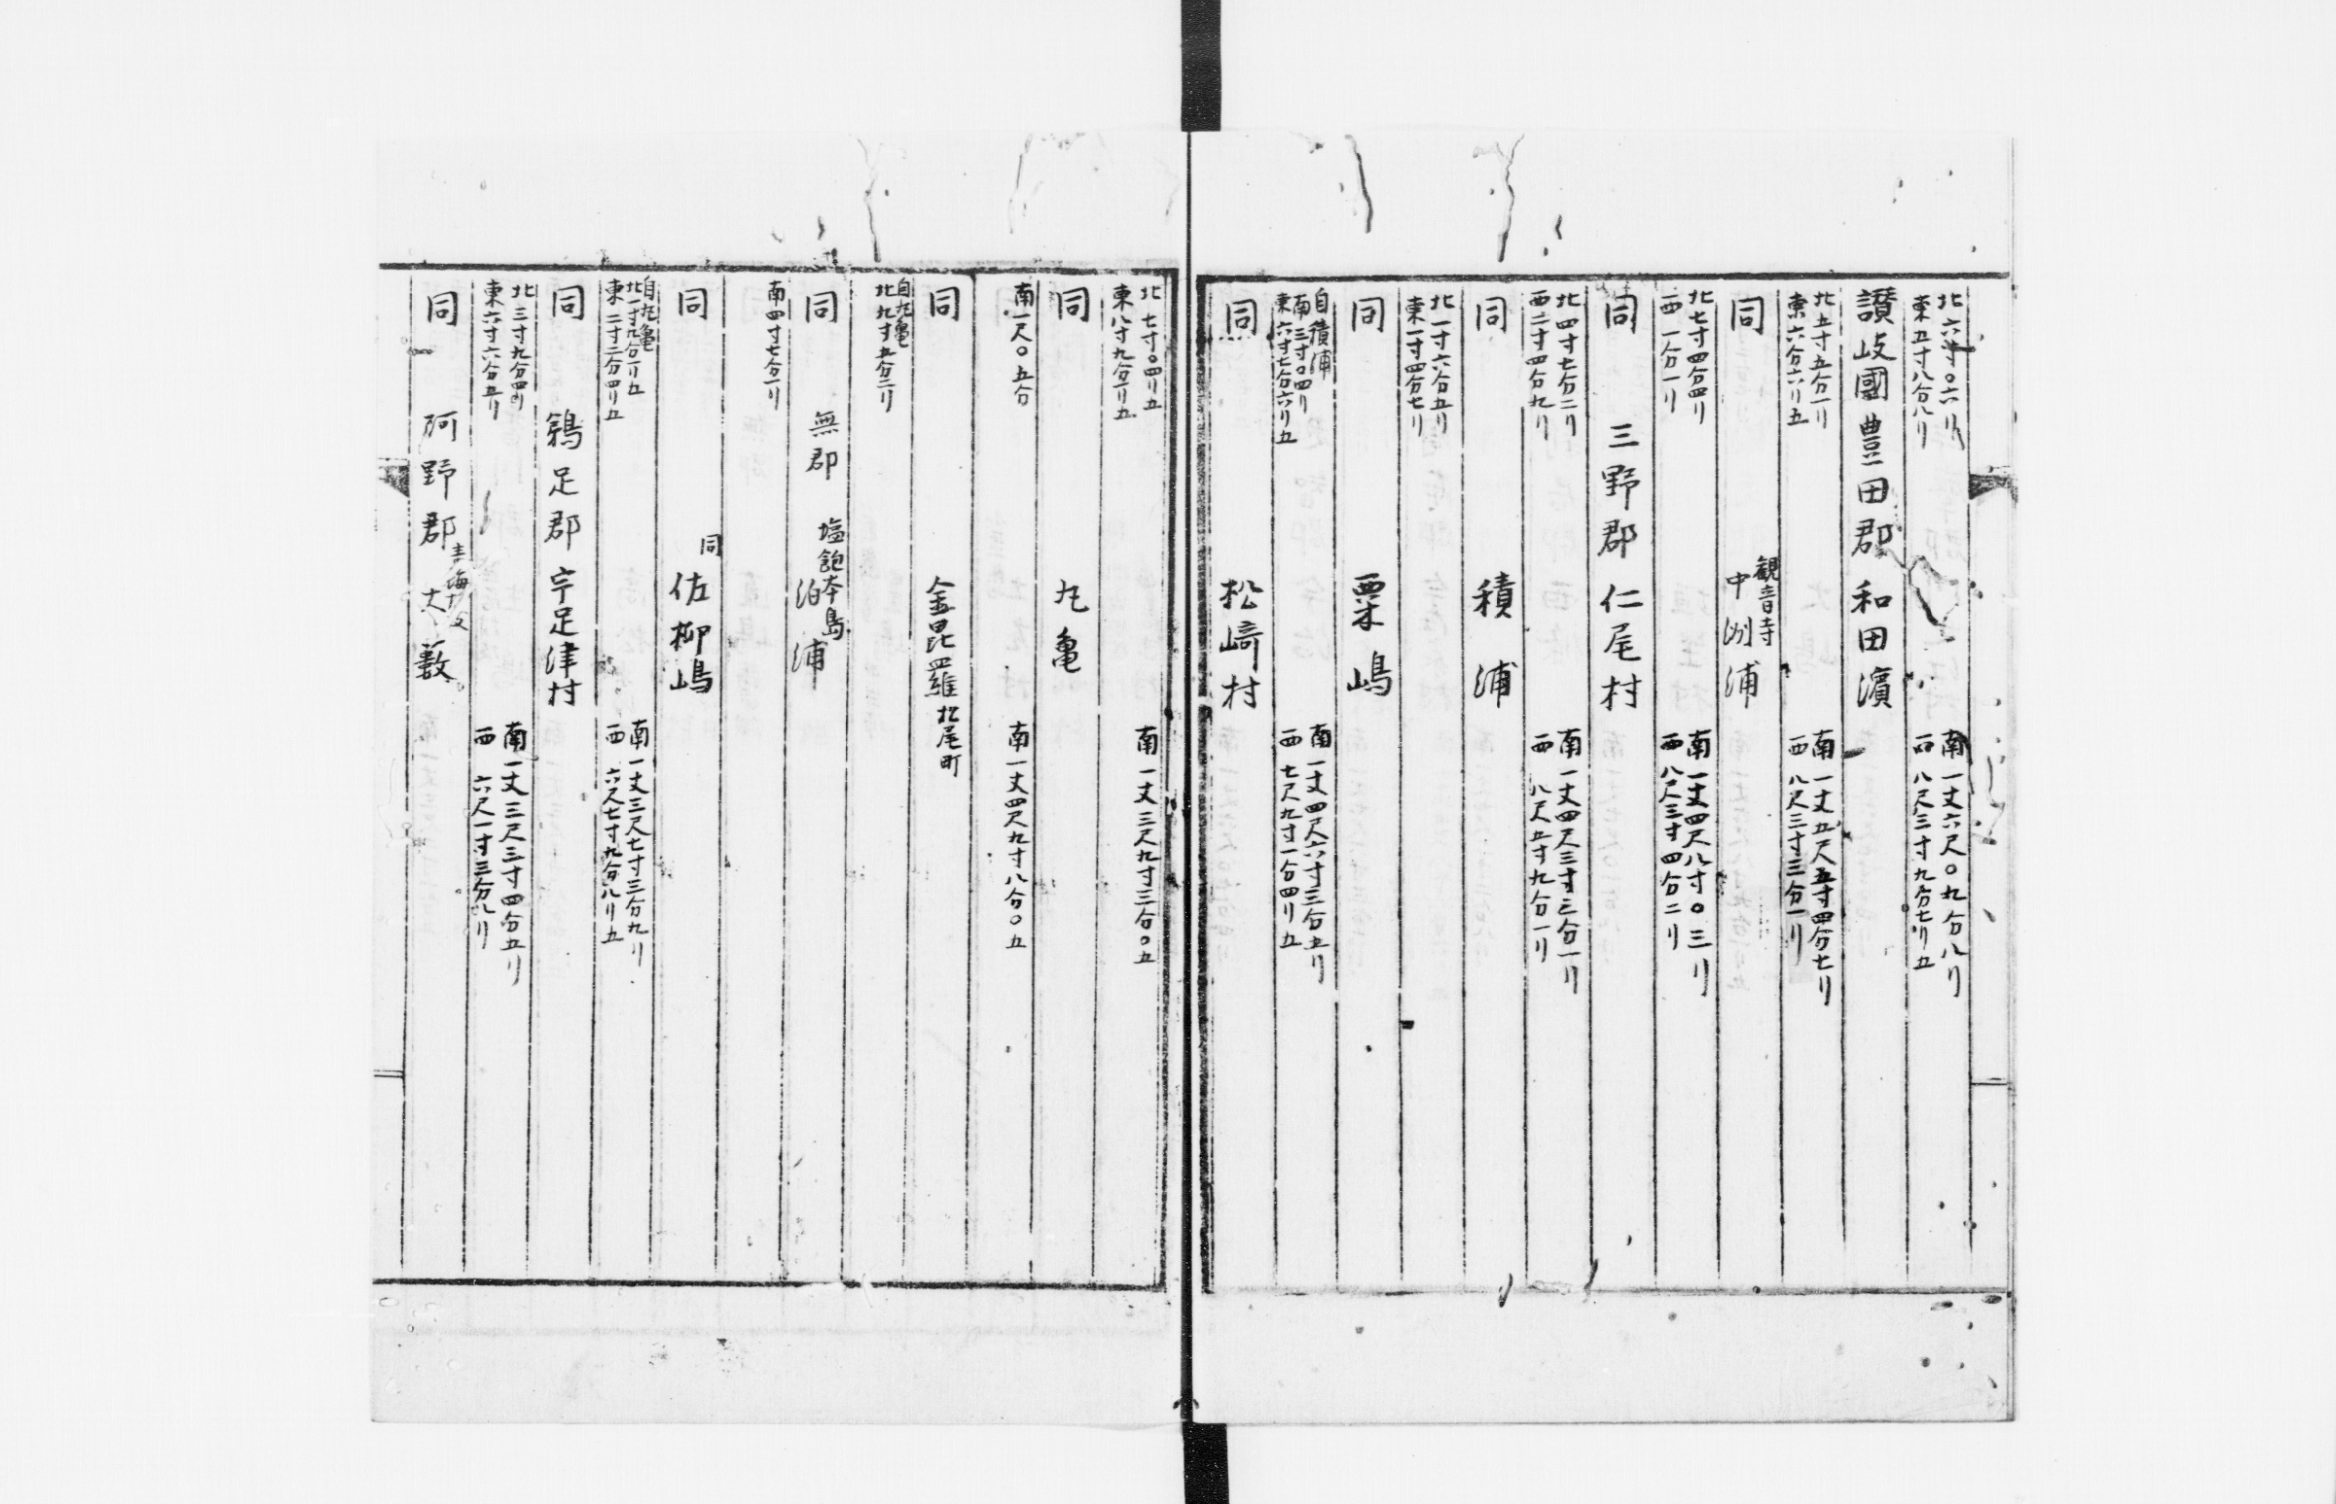 北六寸〇六リ 南一丈六尺〇九分八リ
東五寸八分八リ 西八尺三寸九分七リ五
讃岐國豊田郡 和田濱
北五寸五分一リ 南一丈五尺五寸四分七リ
東六分六リ五 西八尺三寸三分一リ
同 観音寺
中洲浦
北七寸四分四リ 南一丈四尺八寸〇三リ
西一分一リ 西八尺三寸四分二リ
同 三野郡 仁尾村
北四寸七分二リ 南一丈四尺三寸三分一リ
西二寸四分九リ 西八尺五寸九分一リ
同 積浦
北一寸六分五リ
東一寸四分七リ
同 粟嶋
自積浦
南三寸〇四リ 南一丈四尺六寸三分五リ
東六寸七分六リ五 西七尺九寸一分四リ五
同 松﨑村
北七寸〇四リ五 南一丈三尺九寸三分〇五
東八寸九分一リ五
同 丸亀
南一尺〇五分 南一丈四尺九寸八分〇五
同 金毘羅 北尾町
自丸亀
北九寸五分二リ
同 無郡 塩飽本島
泊浦
南四寸七分一リ
同 同 佐柳嶋
自丸亀
北一寸九分一リ五 南一丈三尺七寸三分九リ
東二寸二分四リ五 西六尺七寸九分八リ五
同 鵜足郡 宇足津村
北三寸九分四リ 南一丈三尺三寸四分五リ
東六寸六分五リ 西六尺一寸三分八リ
同 阿野郡 大薮